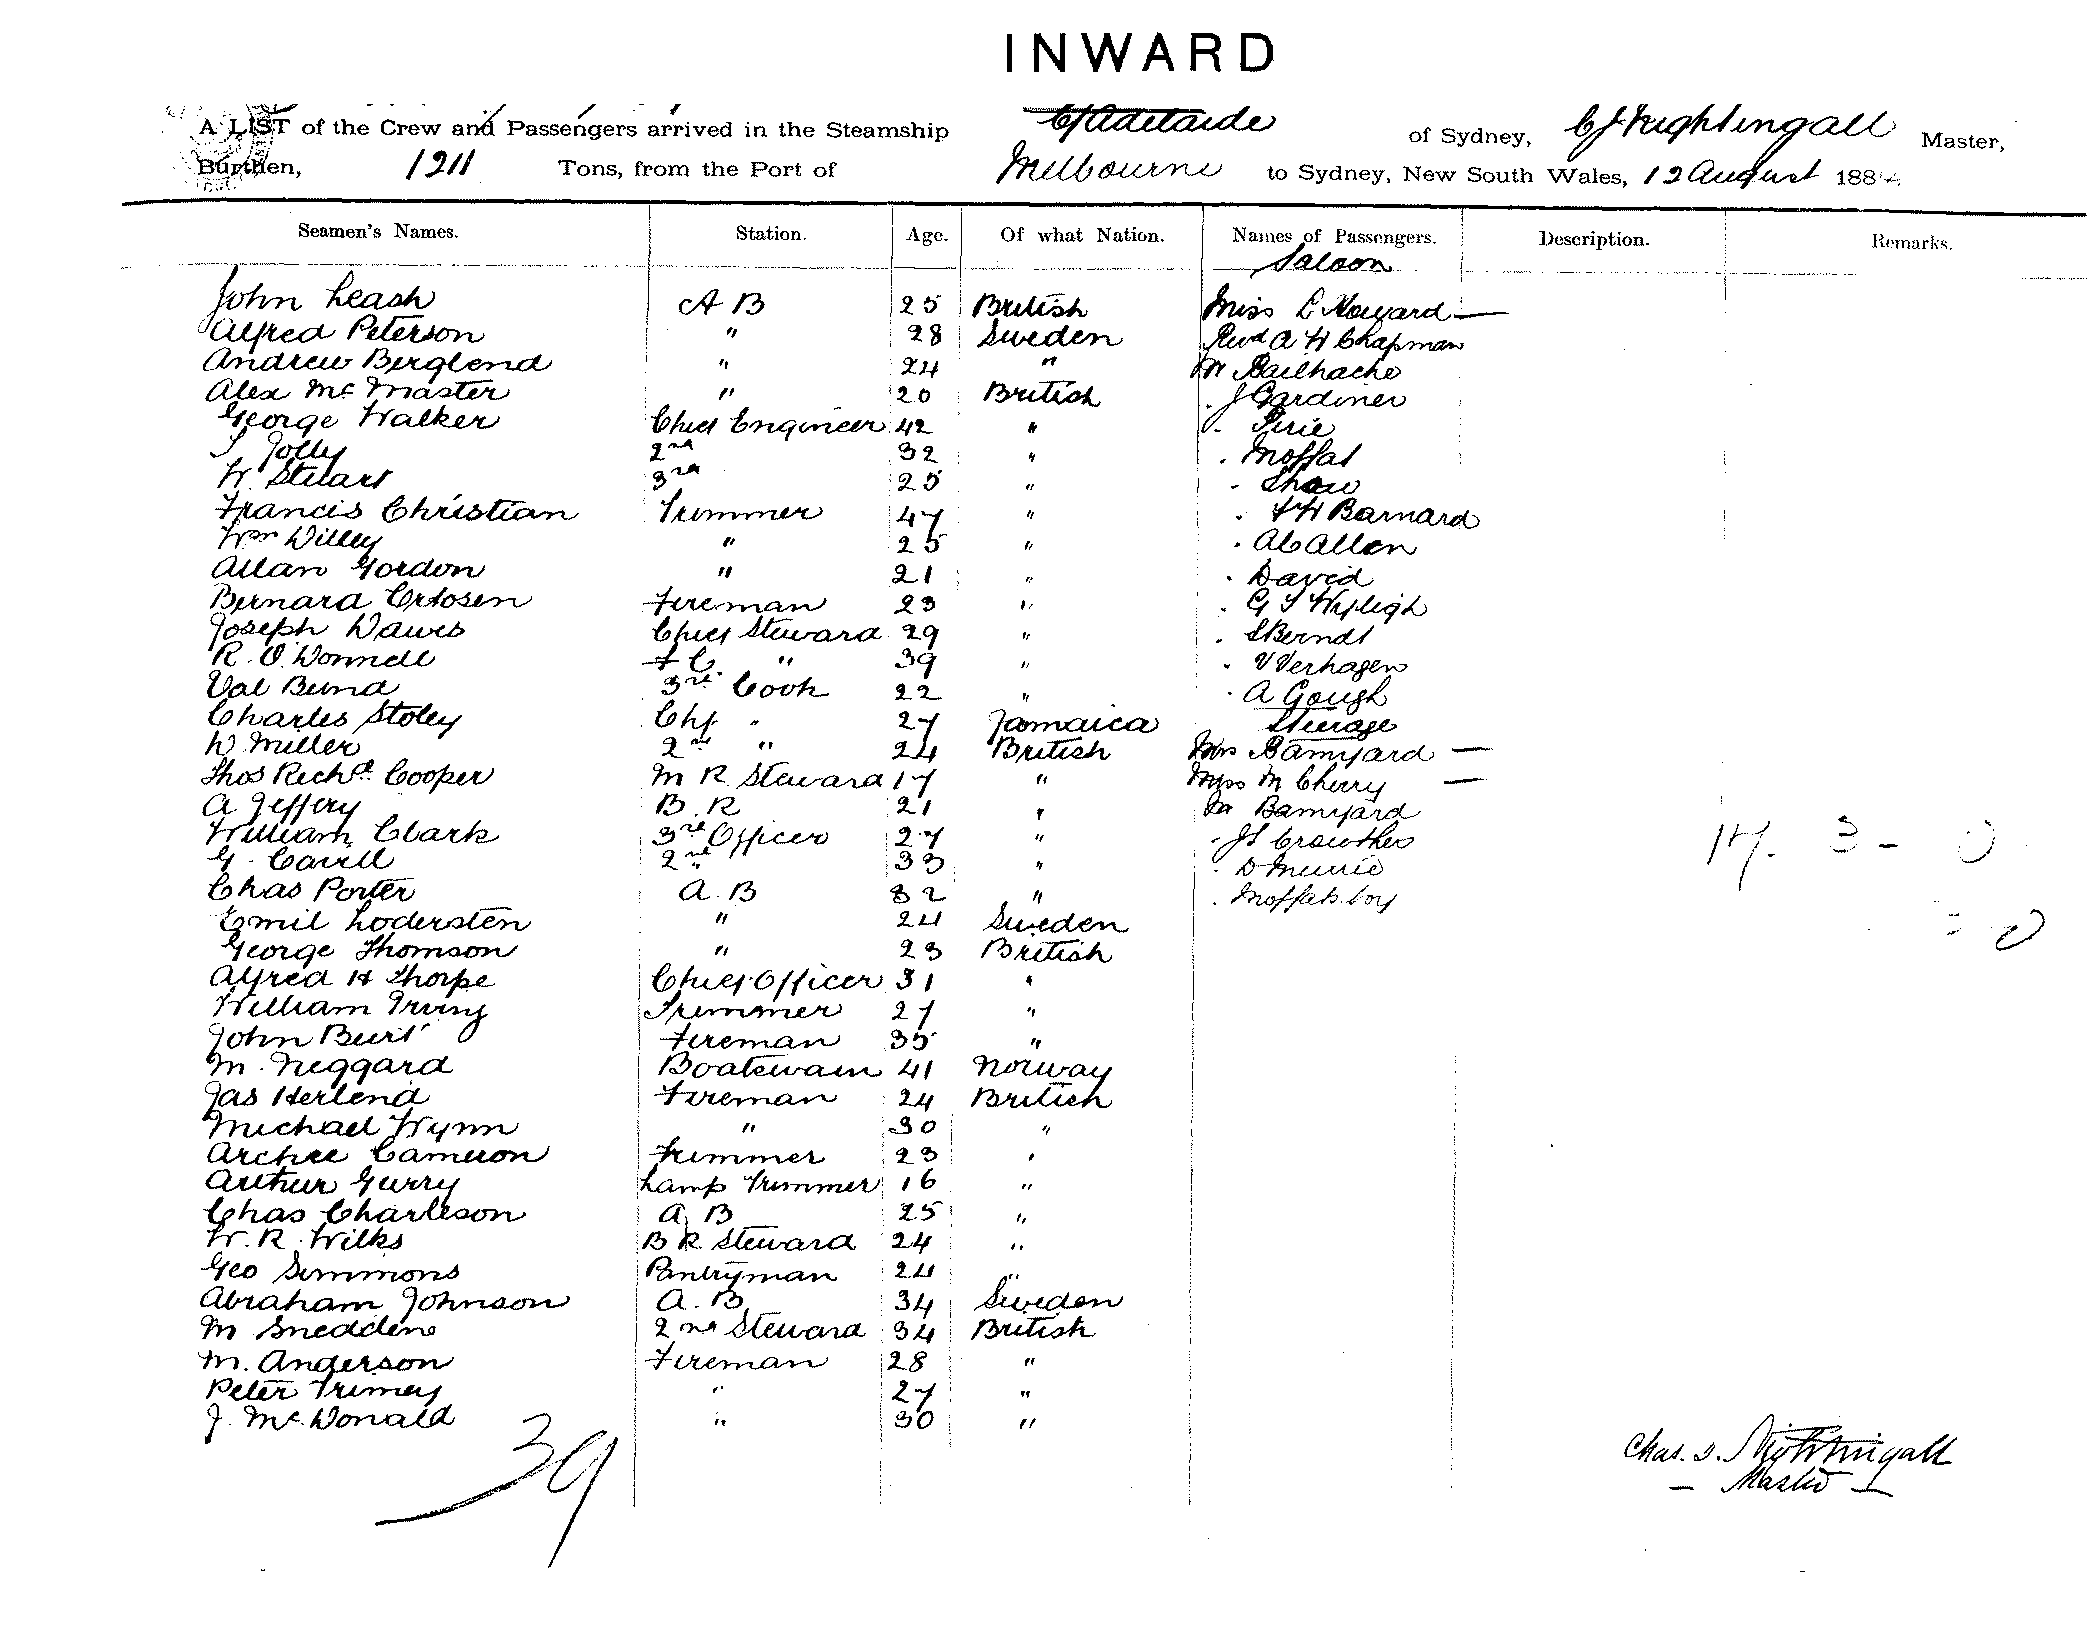 INWARD
A LIST of the Crew and Passengers arrived in the Steamship C/ Adelaide of Sydney, C J Nightingall Master,
Burthen, 1211 Tons, from the Port of Melbourne to Sydney, New South Wales, 12 August 188
Seamen's Names. Station. Age. Of what Nation. Names of Passengers. Description. Remarks.
Saloon
John Leash A B 25 British Miss L Howard —
Alfred Peterson " 28 Sweden Revd A H Chapman
Andrew Berglend " 24 " Mr Bailhache
Alex McMaster " 20 British . J Gardiner
George Walker Chief Engineer 42 " . Pirie
Jolly 2nd 32 " . Moffat
W. Stuart 3rd 25 " . Shaw
Francis Christian Trimmer 47 " . F H Barnard
Wm Willey " 25 " . A C Allen
Allan Gordon " 21 " . David
Bernard Fireman 23 " . G
Joseph Dawes Chief Steward 29 " . S Berndt
R. O. Donnell F C. " 39 " . V Verhagen
Val Bund 3rd Cook 22 " . A Gough
Charles Stoley Chf " 27 Jamaica Steerage
W Miller 2nd " 24 British Mrs Bamyard —
Thos Richd Cooper M R Steward 17 " Miss M Cherry —
A Jeffery B. R 21 " Mr Bamyard
William Clark 3rd Officer 27 " . Crowther
G. Cavill 2nd " 33 " . D Murrie
Chas Porter A. B 32 " . Moffats boy
Emil Lodersten " 24 Sweden
George Thomson " 23 British
Alfred H Thorpe Chief Officer 31 "
William Irving Trimmer 27 "
John Burt Fireman 35 "
M. Neggard Boatswain 41 Norway
Jas Herlend Fireman 24 British
Michael Wynn " 30 "
Archie Cameron Trimmer 23 "
Arthur Gurry Lamp Trimmer 16 "
Chas Charleson A B 25 "
W. R. Wilks B R Steward 24 "
Geo Simmons Pantryman 24 "
Abraham Johnson A. B 34 Sweden
M Sneddene 2nd Steward 34 British
M. Anderson Fireman 28 "
Peter Trimey " 27 "
J. McDonald " 30 "
39
Chas. J. Nightingall
— Master —